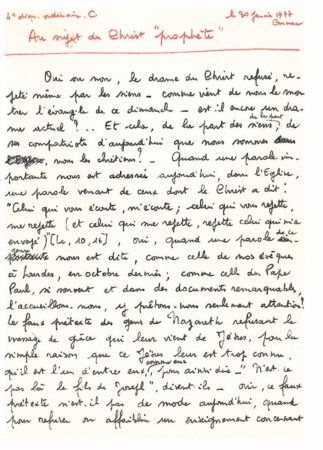 4e dim. ordinaire. C
le 30 janvier 1977
Au sujet du Christ "prophète"
Oui ou non, le drame du Christ refusé, re-
jeté même par les siens - comme vient de nous le mon-
trer l'évangile de ce dimanche - est-il encore un dra-
me actuel ? .. Et cela, de la part des siens, de la part de
ses compatriotes d'aujourd'hui que nous sommes
nous les chrétiens ? - Quand une parole im-
portante nous est adressée aujourd'hui, dans l'Eglise,
une parole venant de ceux dont le Christ a dit :
"Celui qui vous écoute, m'écoute ; celui qui vous rejette
me rejette (et celui qui me rejette, rejette celui qui m'a
envoyé)" [Lc, 10, 16], oui, quand une parole de ce
genre nous est dite, comme celle de nos évêques
à Lourdes, en octobre dernier ; comme celle du Pape
Paul, si souvent et dans des documents remarquables,
l'accueillons-nous, y prêtons-nous seulement attention?
Le faux prétexte des gens de Nazareth refusant le
message de grâce qui leur vient de Jésus, pour la
simple raison que ce Jésus leur est trop connu,
qu'il est l'un d'entre eux, comme eux, pour ainsi dire - "N'est-ce
pas là le fils de Joseph", disent-ils - oui, ce faux
prétexte n'est-il pas de mode aujourd'hui, quand
pour refuser ou affaiblir un enseignement concernant